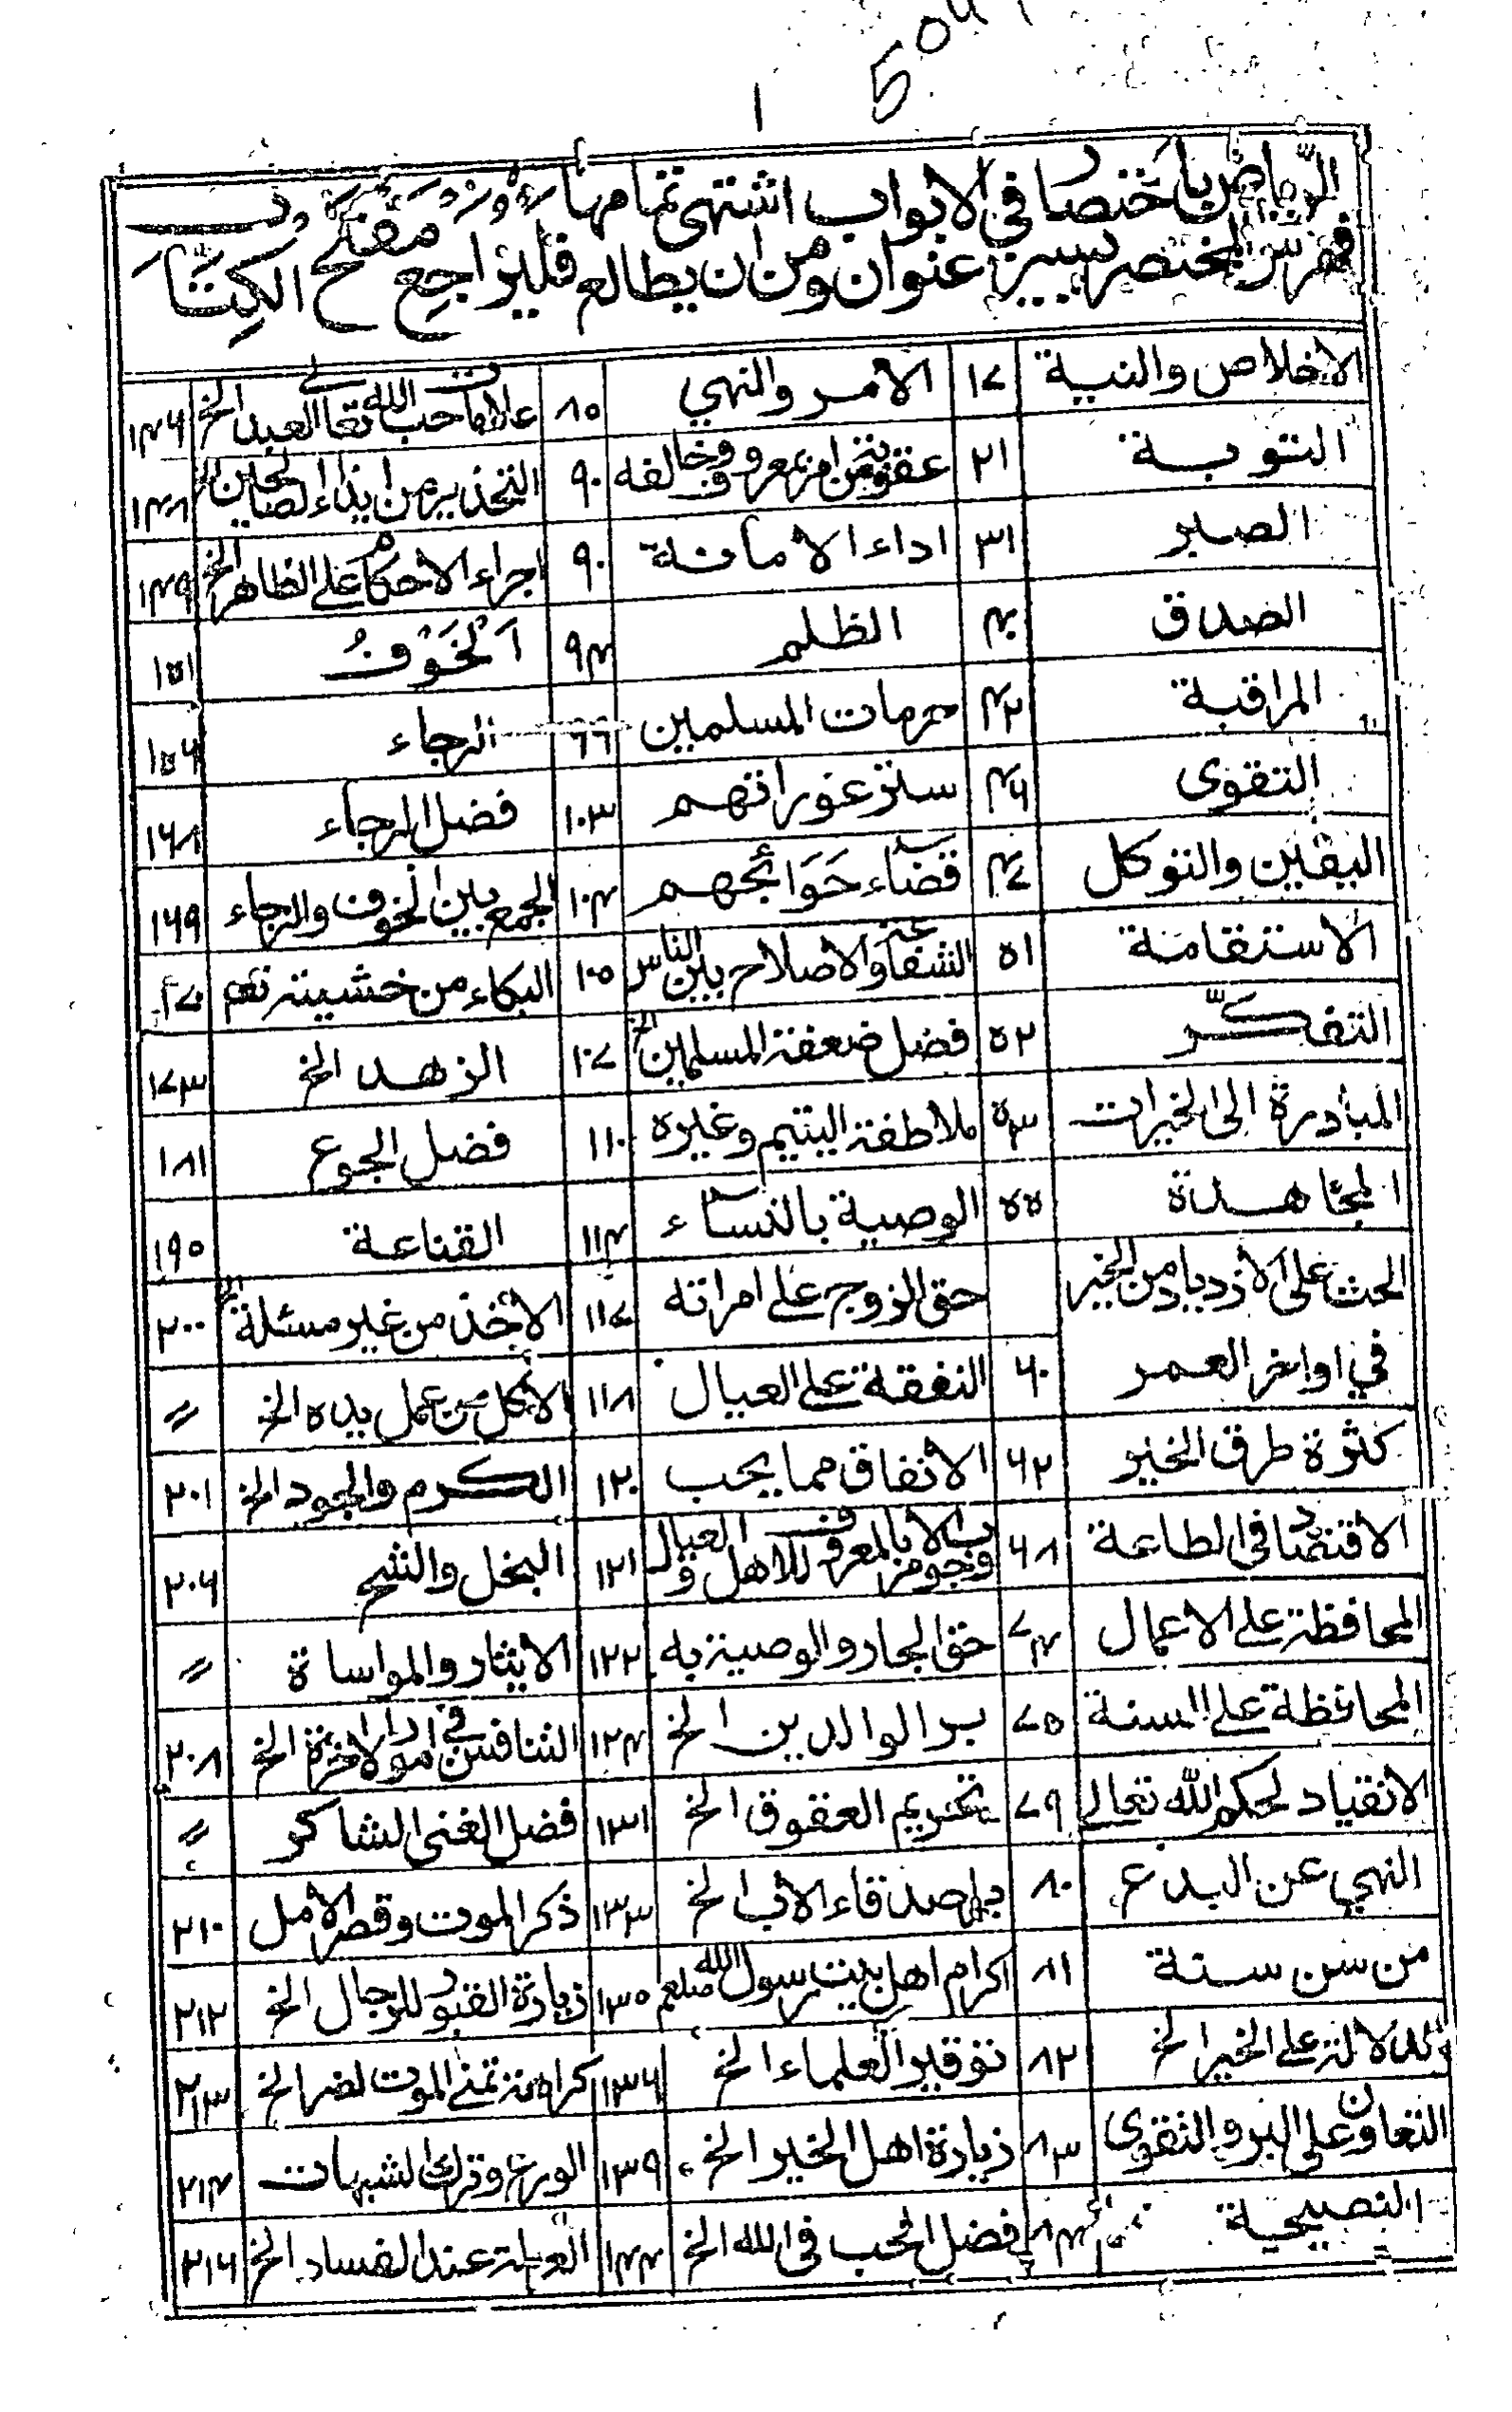 فهرس المختصر يسير عنوان ومن ان يطالع فليراجع مفتح الكتاب
الاخلاص والنية ١٧ الامر والنهي ٨٥ علامات حب الله تعالى العبد الخ ١٤٦
التوبة ٢١ عقوبة من امر بمعروف وخالفه ٩٠ التحذير من ايذاء الصالحين الخ ١٤٨
الصبر ٣١ اداء الامانة ٩٠ اجراء الاحكام على الظاهر الخ ١٤٩
الصدق ٤٠ الظلم ٩٤ اَلْخَوْفُ ١٥١
المراقبة ٤٢ حرمات المسلمين الرجاء ١٥٦
التقوى ٤٦ ستر عوراتهم ١٠٣ فضل الرجاء ١٦٨
اليقين والتوكل ٤٧ قضاء حَوَائجهم ١٠٤ الجمع بين الخوف والرجاء ١٦٩
الاستقامة ٥١ الشفاعة والاصلاح بين الناس ١٠٥ البكاء من خشيته تعم ١٧٠
التفكّر ٥٢ فضل ضعفة المسلمين الخ ١٠٧ الزهد الخ ١٧٣
المبادرة الى الخيرات ٥٣ ملاطفة اليتيم وغيره ١١٠ فضل الجوع ١٨١
المجاهدة ٥٥ الوصية بالنساء ١١٤ القناعة ١٩٥
الحث على الازدياد من الخير حق الزوج على امراته ١١٧ الاخذ من غير مسئلة الخ ٢٠٠
في اواخر العمر ٦٠ النفقة على العيال ١١٨ الاكل من عمل يده الخ ″
كثرة طرق الخير ٦٢ الانفاق مما يحب ١٢٠ الكرم والجود الخ ٢٠١
الاقتصاد فى الطاعة ٦٨ وجوب الامر بالمعروف للاهل والعيال ١٢١ البخل والشح ٢٠٦
المحافظة على الاعمال ٧٤ حق الجار والوصية به ١٢٢ الايثار والمواساة ″
المحافظة على السنة ٧٥ بر الوالدين الخ ١٢٤ التنافس في امور الاخرة الخ ٢٠٨
الانقياد لحكم الله تعالى ٧٩ تحريم العقوق الخ ١٣١ فضل الغنى الشاكر ″
النهي عن البدع ٨٠ بر اصدقاء الاب الخ ١٣٣ ذكر الموت وقصر الامل ٢١٠
من سن سنة ٨١ اكرام اهل بيت رسول الله صلعم ١٣٥ زيارة القبور للرجال الخ ٢١٢
الدلالة على الخير الخ ٨٢ توقير العلماء الخ ١٣٦ كراهة تمنى الموت لضر الخ ٢١٣
التعاون على البر والتقوى ٨٣ زيارة اهل الخير الخ ١٣٩ الورع وترك الشبهات ٢١٤
النصيحة فضل الحب فى الله الخ ١٤٤ العزلة عند الفساد الخ ٢١٦